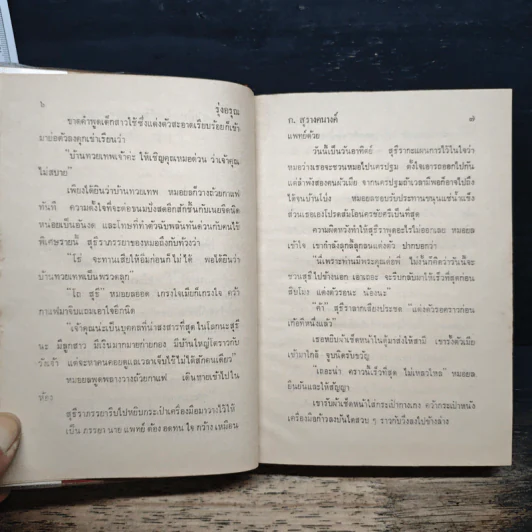 ๖ รุ่งอรุณ
ขาดคำพูดเด็กสาวใช้ซึ่งแต่งตัวสะอาดเรียบร้อยก็เข้า
มาย่อตัวลงคุกเข่าเรียนว่า
"บ้านทวยเทพเจ้าค่ะ ให้เชิญคุณหมอด่วน ว่าเจ้าคุณ
ไม่สบาย"
เพียงได้ยินว่าบ้านทวยเทพ หมอยลก็วางถ้วยกาแฟ
ทันที ความตั้งใจที่จะต่อขนมปังสดอีกสักชิ้นกับเนยจืดนิด
หน่อยเป็นอันงด และโทษที่ทำตัวฉับพลันทันด่วนกับคนไข้
พิเศษรายนี้ สุธีราภรรยาของหมอถึงกับท้วงว่า
"โธ่ จะทานเสียให้อิ่มก่อนก็ไม่ได้ พอได้ยินว่า
บ้านทวยเทพเป็นพรวดลุก"
"โถ สุธี" หมอยลออด เกรงใจเมียก็เกรงใจ คว้า
กาแฟมาจิบแถมเอาใจอีกนิด
"เจ้าคุณน่ะเป็นบุคคลที่น่าสงสารที่สุดในโลกนะสุธี
นะ มีลูกสาว มีเงินมากมายก่ายกอง มีบ้านใหญ่โตราวกับ
วังเจ้า แต่จะหาคนคอยดูแลเวลาเจ็บไข้ไม่ได้สักคนเดียว"
หมอยลพูดพลางวางถ้วยกาแฟ เดินหายเข้าไปใน
ห้อง
สุธีราภรรยารีบไปหยิบกระเป๋าเครื่องมือมาวางไว้ให้
เป็น ภรรยา นาย แพทย์ ต้อง อดทน ใจ กว้าง เหมือน
ก. สุรางคนางค์ ๗
แพทย์ด้วย
วันนี้เป็นวันอาทิตย์ สุธีรากะแผนการไว้ในใจว่า
หมอว่างเธอจะชวนหมอไปนครปฐม ตั้งใจเอารถออกไปกัน
แต่ลำพังสองคนผัวเมีย จากนครปฐมถ้าเวลามีพอก็อาจไปถึง
ได้จนบ้านโป่ง หมอยลชอบรับประทานขนุนแช่น้ำแข็ง
ส่วนเธอเองโปรดส้มโอนครชัยศรีเป็นที่สุด
ความผิดหวังทำให้สุธีราพูดอะไรไม่ออกเลย หมอยล
เข้าใจ เขากำลังลุกลี้ลุกลนแต่งตัว ปากบอกว่า
"นี่เพราะท่านมีพระคุณต่อพี่ ไม่งั้นก็คิดว่าวันนี้จะ
ชวนสุธีไปข้างนอก เอาเถอะ จะรีบกลับมาให้เร็วที่สุดก่อน
สิบโมง แต่งตัวรอนะ น้องนะ"
"ค้า" สุธีราลากเสียงประชด "แต่งตัวรอคราวก่อน
เก้อทีหนึ่งแล้ว"
เธอหยิบผ้าเช็ดหน้าในตู้มาส่งให้สามี เขารั้งตัวเมีย
เข้ามาใกล้ จูบนิดรับขวัญ
"เถอะน่า คราวนี้เร็วที่สุด ไม่เหลวไหล" หมอยล
ยืนยันและให้สัญญา
เขารับผ้าเช็ดหน้าใส่กระเป๋ากางเกง คว้ากระเป๋าหนัง
เครื่องมือก้าวลงบันไดสวบ ๆ ราวกับวิ่งลงไปข้างล่าง